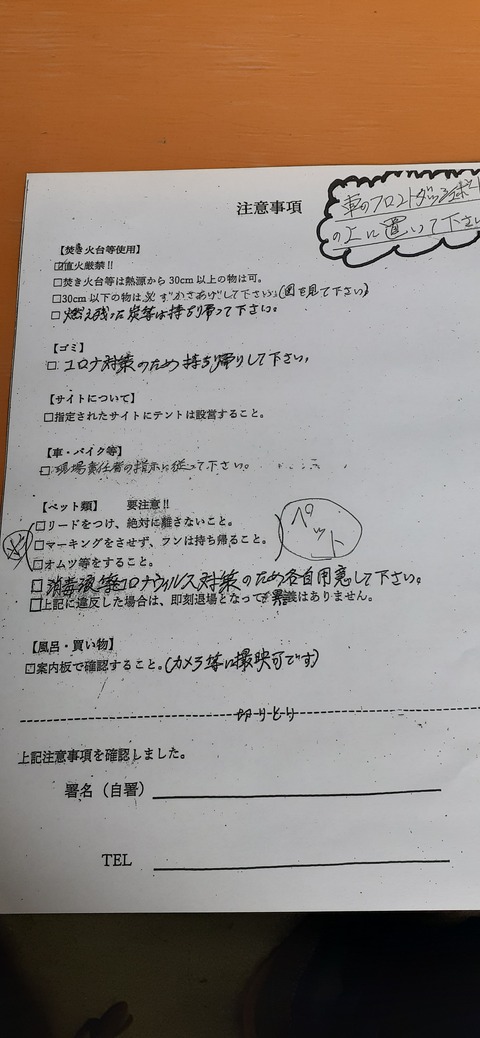 注意事項
車のフロントダッシュボード
の上に置いて下さい
【焚き火台等使用】
☐直火厳禁!!
☐焚き火台等は熱源から30cm以上の物は可。
☐30cm以下の物は必ずかさあげして下さい(図を見て下さい)
☐燃え残った炭等は持ち帰って下さい。
【ゴミ】
☐コロナ対策のため持ち帰りして下さい。
【サイトについて】
☐指定されたサイトにテントは設営すること。
【車・バイク等】
☐現場責任者の指示に従って下さい。
【ペット類】 要注意!!
☐リードをつけ、絶対に離さないこと。
☐マーキングをさせず、フンは持ち帰ること。
☐オムツ等をすること。
ペット
☐消毒液等コロナウィルス対策のため各自用意して下さい。
☐上記に違反した場合は、即刻退場となっても異義はありません。
【風呂・買い物】
☐案内板で確認すること。(カメラ等は撮映可です)
切りとり
上記注意事項を確認しました。
署名(自署)
TEL